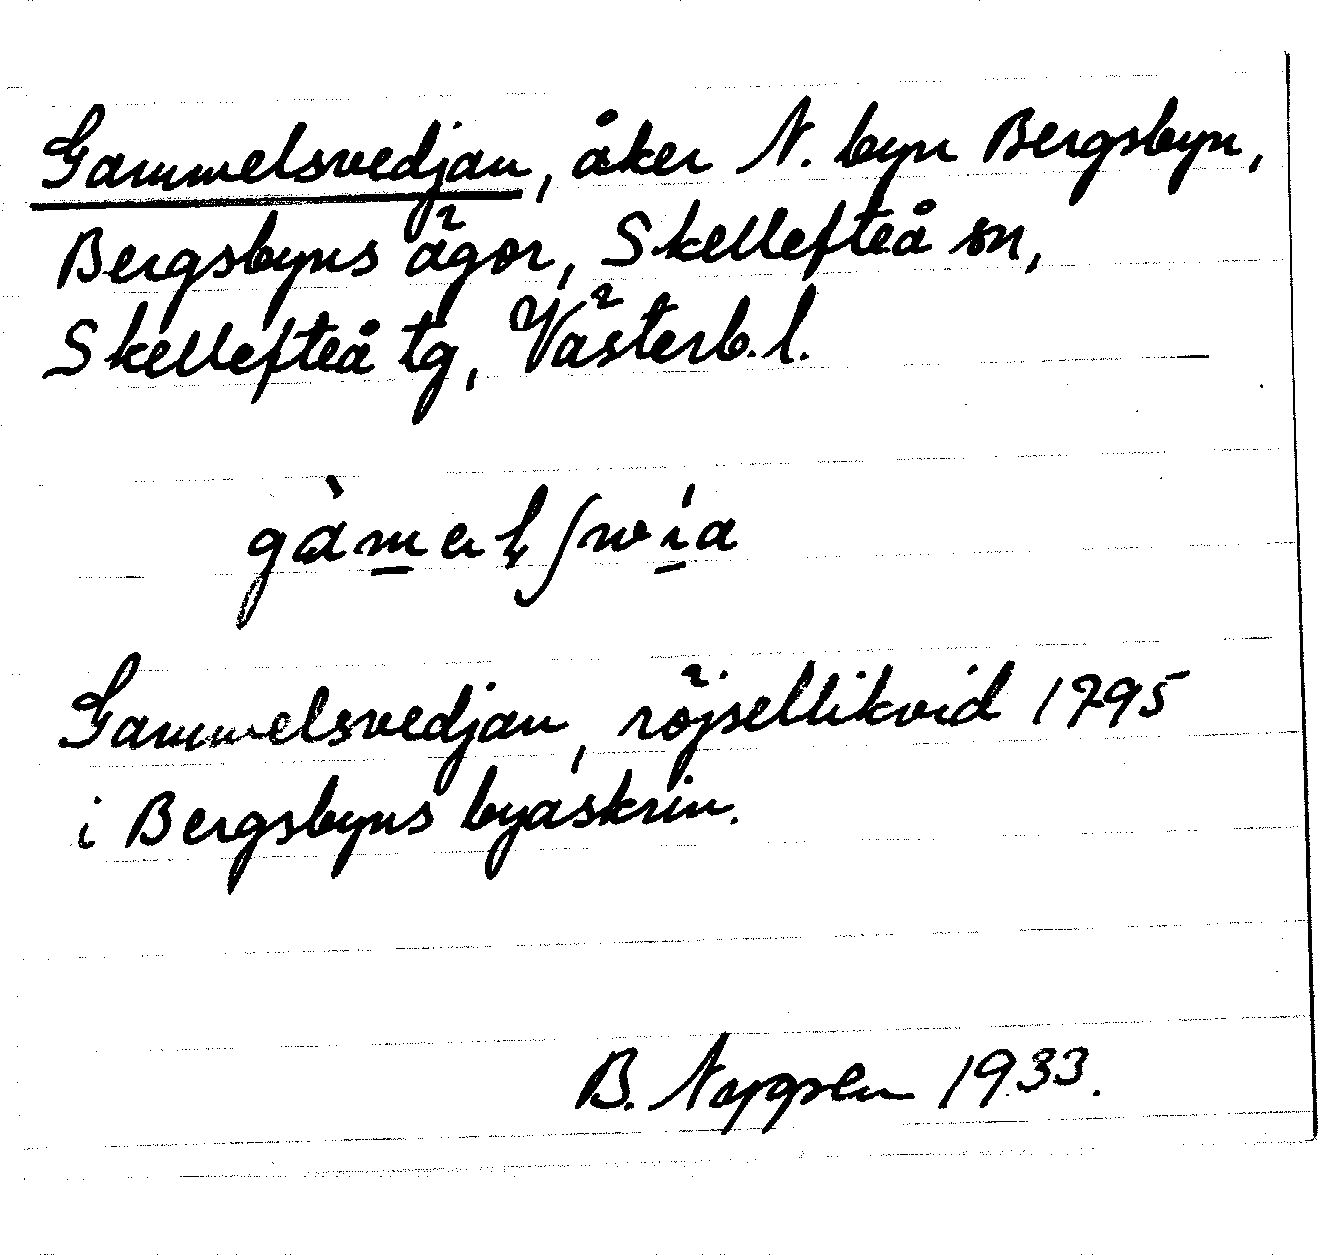 Gammelsvedjan, åker N. byn Bergsbyn,
Bergsbyns ägor, Skellefteå sn,
Skellefteå tg, Västerb.l.
Gammelsvedjan, röjsellikvid 1795
i Bergsbyns byaskrin.
B. 1933.